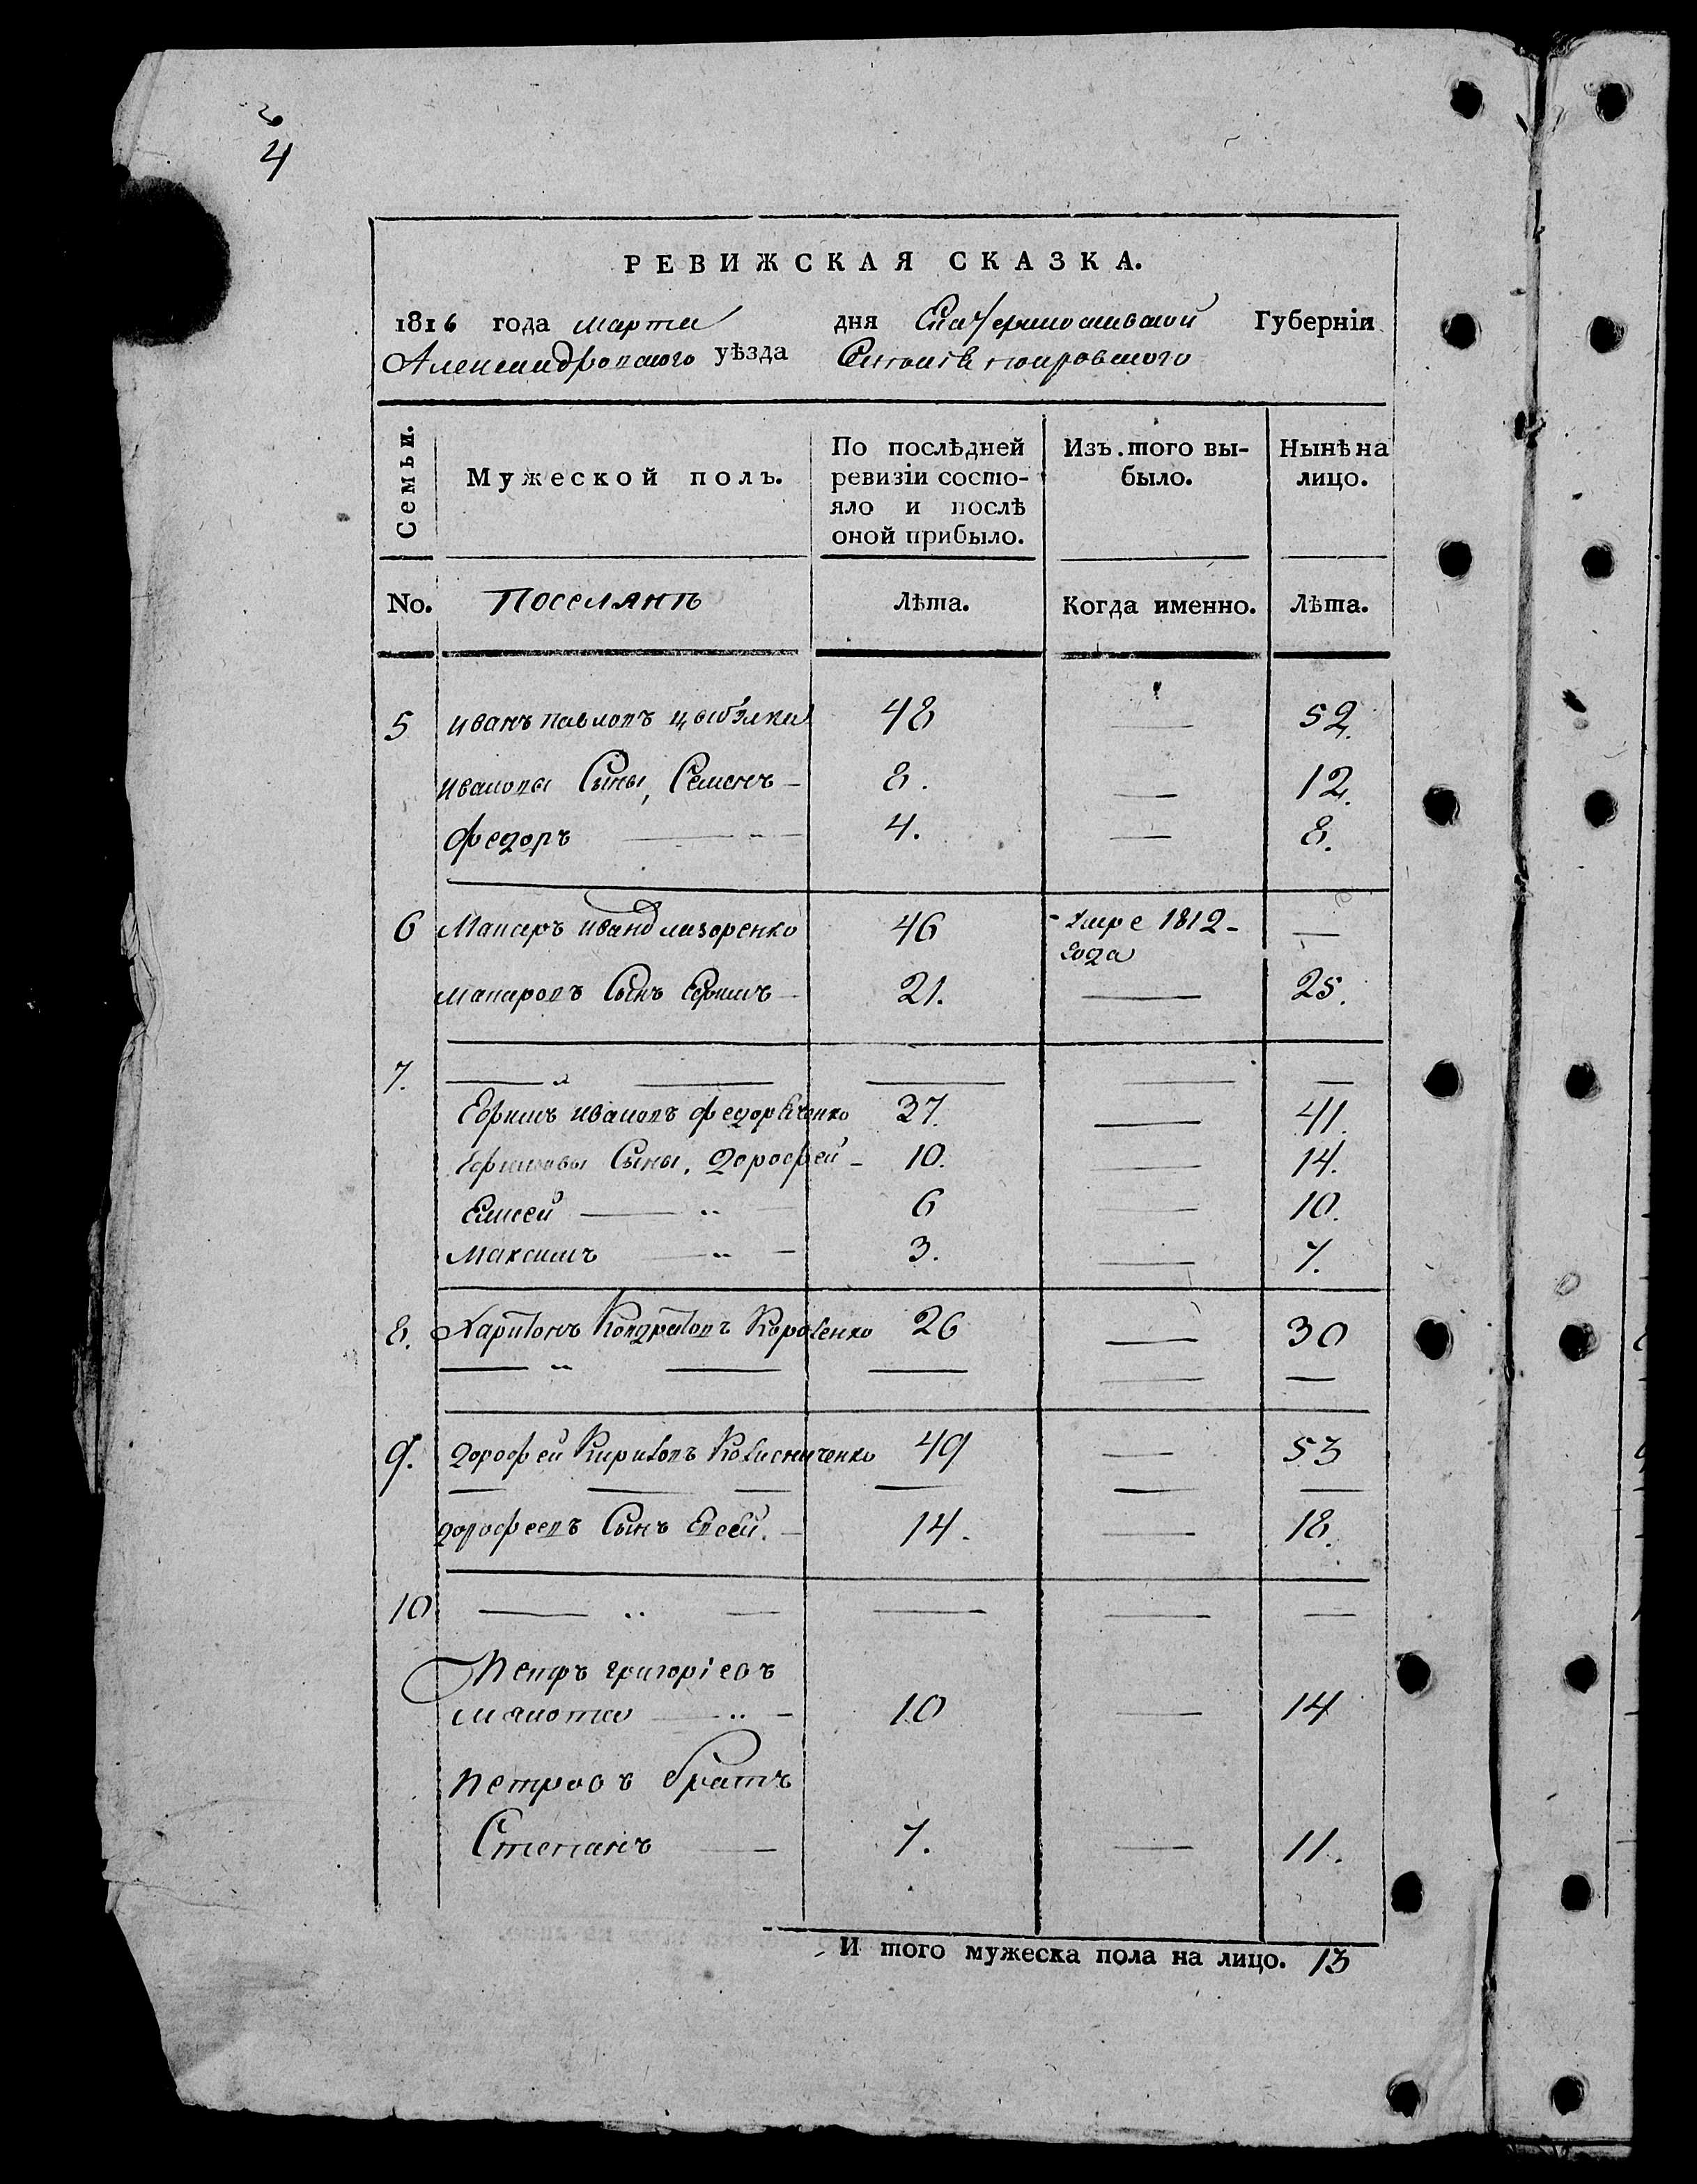 4
РЕВИЖСКАЯ СКАЗКА.
1816 года марта дня Екатеринославской Губерніи
Александровского уѣзда
Семьи. Мужеской полъ. По послѣдней ревизіи состо- яло и послѣ оной прибыло. Изъ того вы- было. Нынѣ на лицо.
No. Поселянъ Лѣта. Когда именно. Лѣта.
5 иванъ павловъ 48 — 52.
ивановы Сыны, Семенъ — 8. — 12.
федоръ — 4. — 8.
6 Макаръ иванов лазоренко 46 умре 1812- —
года
макаровъ Сынъ Ефимъ — 21. — 25.
7. — — — —
Ефимъ ивановъ федорченко 37. — 41.
Ефимовы Сыны, дорофей — 10. — 14.
Елисей — 6 — 10.
Максимъ — 3. — 7.
8. Харитонъ Кондратовъ 26 — 30
— — — —
9. дорофей Кириловъ Колисниченко 49 — 53
— — — —
дорофеевъ Сынъ Евсей. — 14. — 18.
10 — — — —
Петръ григоріевъ
10 — 14
петровъ братъ
Степанъ — 7. — 11.
И того мужеска пола на лицо. 13